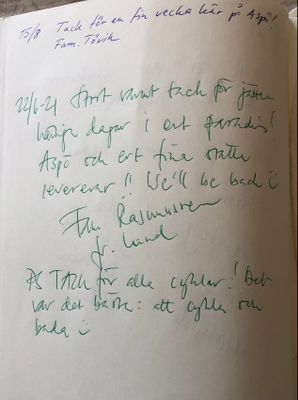 15/8 Tack för en fin vecka här på Aspö!
Fam. Törik
22/6-21 Stort varmt tack för jätte
härliga dagar i ert paradis!
Aspö och ert fina ställe
levererar!! We'll be back ü
Fam Rasmussen
fr. Lund
PS TACK för alla cyklar! Det
var det bästa: att cykla och
bada ü